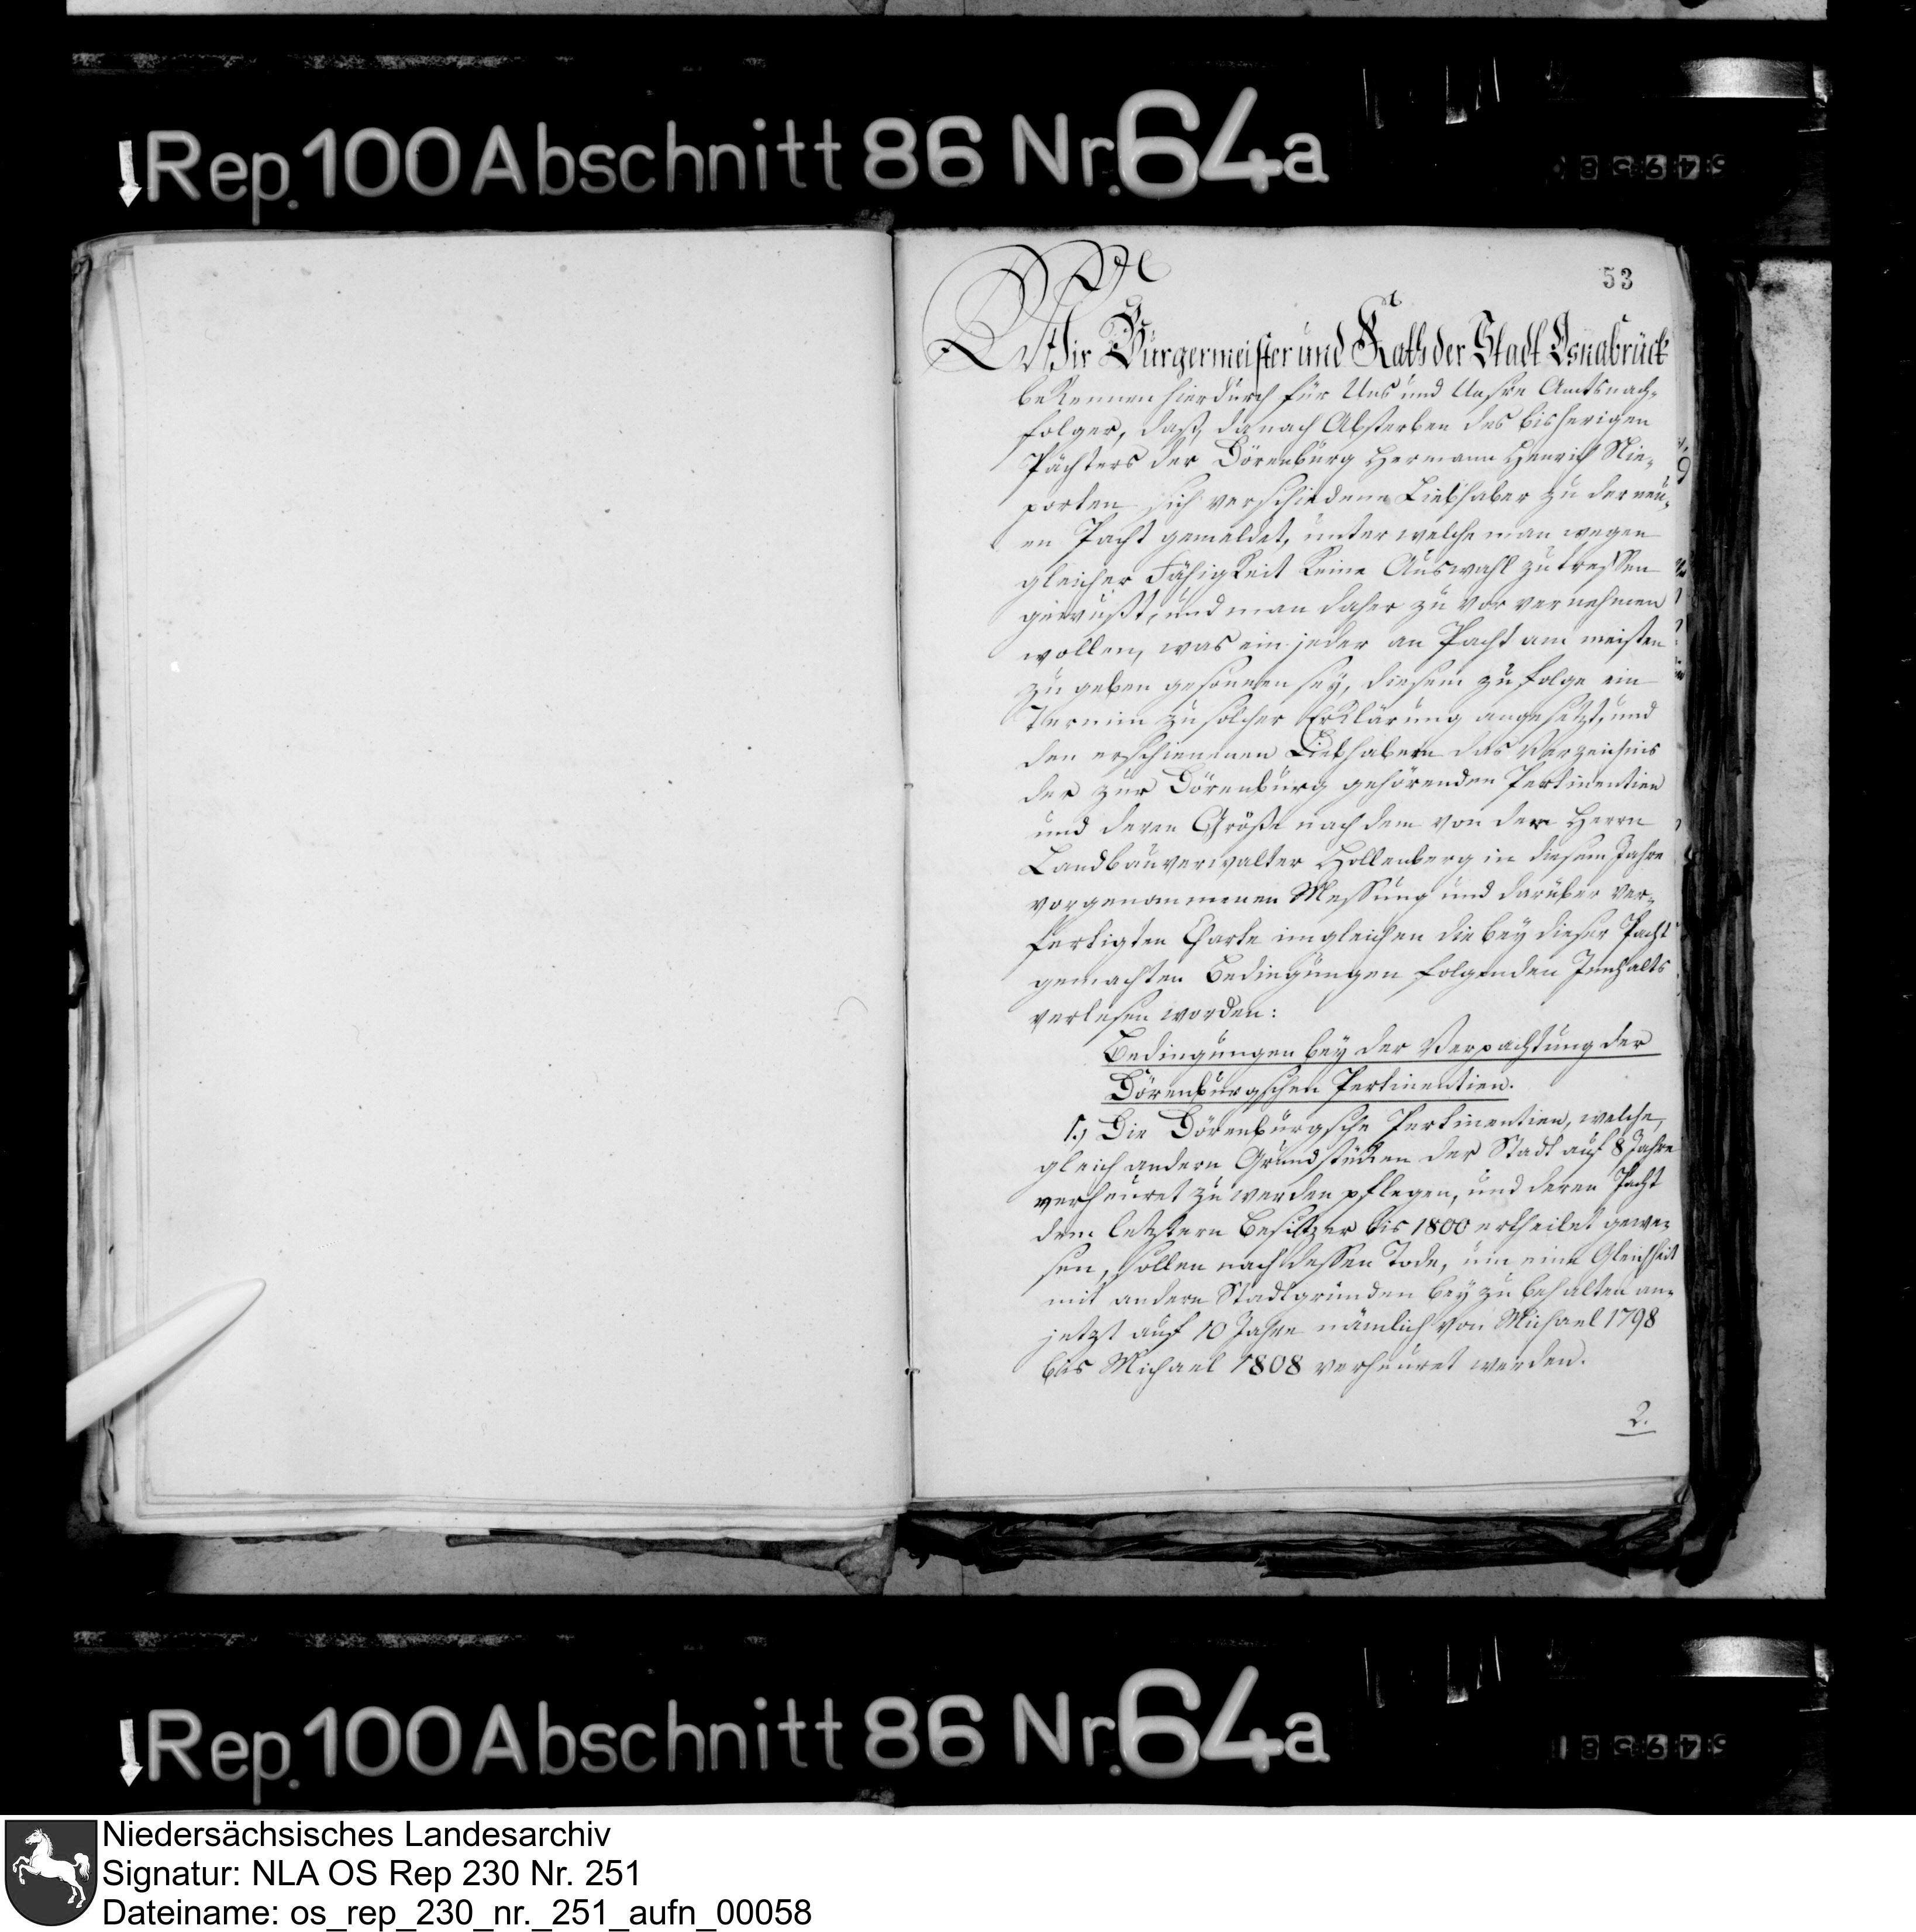 Rep. 100 Abschnitt 86 Nr. 64a
53
Wir Bürgermeister und Rath der Stadt Osnabrück
bekennen hierdurch für Uns und Unsre Amtsnach-
folger, daß, da nach Absterben des bisherigen
Pächters der Dörenburg Hermann Henrich Nie-
porten sich verschiedene Liebhaber zu der neu-
en Pacht gemeldet, unter welche man wegen
gleicher Fähigkeit keine Auswahl zu treffen
gewußt, und man daher zu vor vernehmen
wollen, was ein jeder an Pacht am meisten
zu geben gesonnen sey, diesem zu folge ein
Termin zu solcher Erklärung angesetzt, und
den erschienenen Liebhabern das Verzeichnis
der zur Dörenburg gehörenden Pertinentien
und deren Größe nach dem von dem Herrn
Landbauverwalter Hollenberg in diesem Jahre
vorgenommenen Messung und darüber ver-
fertigten Charte imgleichen die bey dieser Pacht
gemachten Bedingungen folgenden Innhalts
verlesen worden:
Bedingungen bey der Verpachtung der
Dörenburgschen Pertinentien.
1.) Die Dörenburgsche Pertinentien, welche,
gleich andern Grundstücken der Stadt auf 8 Jahre
verheuret zu werden pflegen, und deren Pacht
dem letztern Besitzer bis 1800 ertheilet gewe-
sen, sollen nach dessen Tode, um eine Gleichheit
mit andern Stadtgründen bey zu behalten an-
jetzt auf 10 Jahre nämlich von Michael 1798
bis Michael 1808 verheuret werden.
2.
Rep. 100 Abschnitt 86 Nr. 64a
Niedersächsisches Landesarchiv
Signatur: NLA OS Rep 230 Nr. 251
Dateiname: os_rep_230_nr._251_aufn_00058